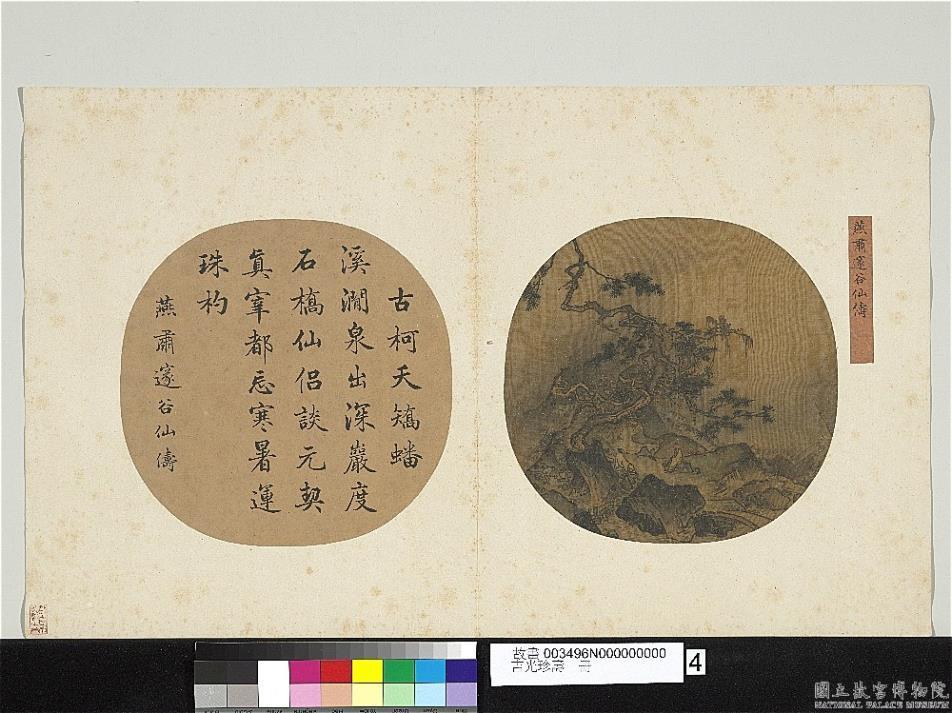 燕肅邃谷仙儔
古柯夭矯蟠
溪澗泉出深巖度
石橋仙侶談元契
眞宰都忘寒暑運
珠杓
燕肅邃谷仙儔
故畫 003496N000000000
4
國立故宮博物院
NATIONAL PALACE MUSEUM